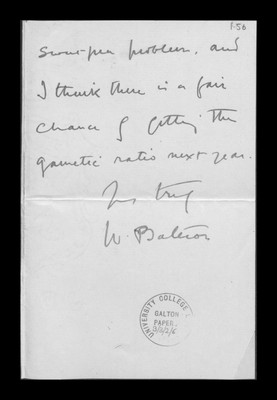 1-56
sweet-pea problem, and
I think there is a fair
chance of getting the
gametic ratio next year.
Yrs truly
W. Bateson
UNIVERSITY COLLEGE
GALTON
PAPERS